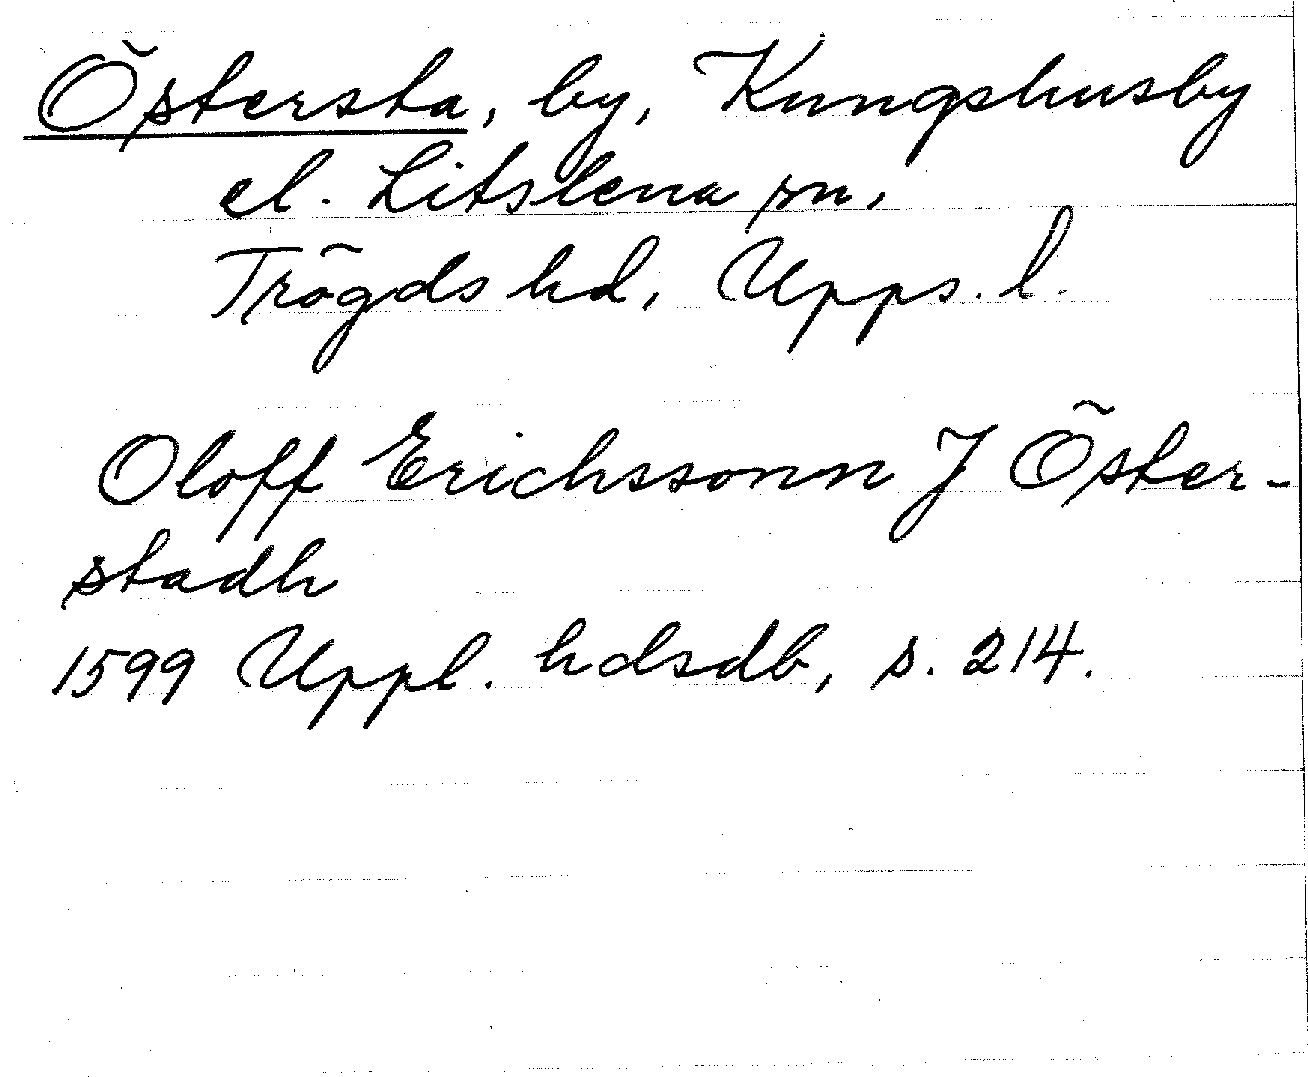 Östersta, by, Kungshusby
el. Litslena sn,
Trögds hd, Upps. l.
Oloff Erichssonn J Öster-
stadh
1599 Uppl. hdsdb, s. 214.